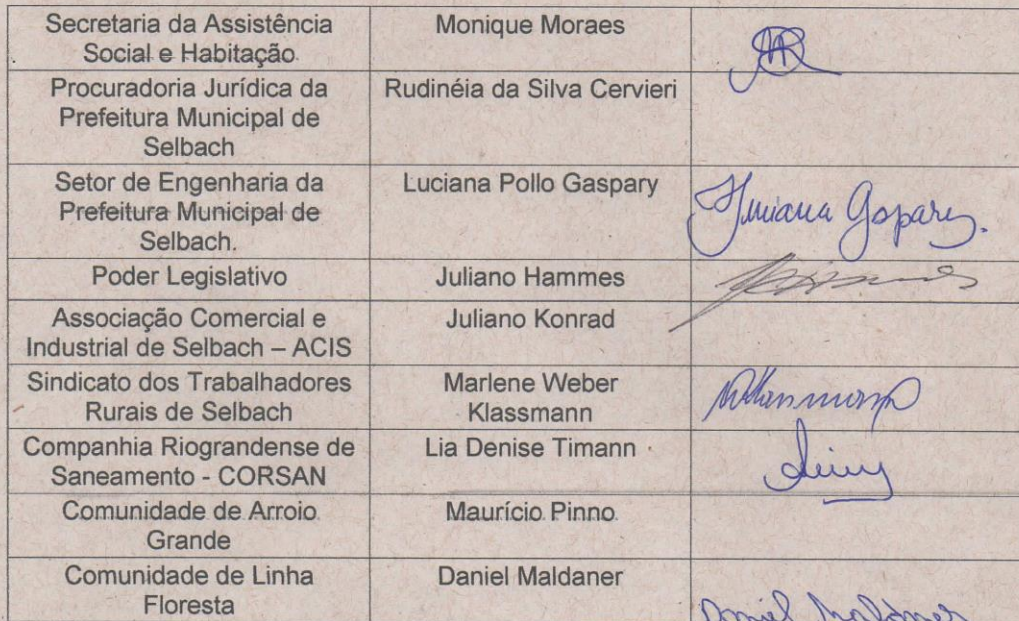 Secretaria da Assistência
Social e Habitação
Monique Moraes
Procuradoria Jurídica da
Prefeitura Municipal de
Selbach
Rudinéia da Silva Cervieri
Setor de Engenharia da
Prefeitura Municipal de
Selbach.
Luciana Pollo Gaspary
Luciana Gaspary.
Poder Legislativo
Juliano Hammes
Associação Comercial e
Industrial de Selbach – ACIS
Juliano Konrad
Sindicato dos Trabalhadores
Rurais de Selbach
Marlene Weber
Klassmann
Companhia Riograndense de
Saneamento - CORSAN
Lia Denise Timann
Comunidade de Arroio
Grande
Maurício Pinno
Comunidade de Linha
Floresta
Daniel Maldaner
Daniel Maldaner